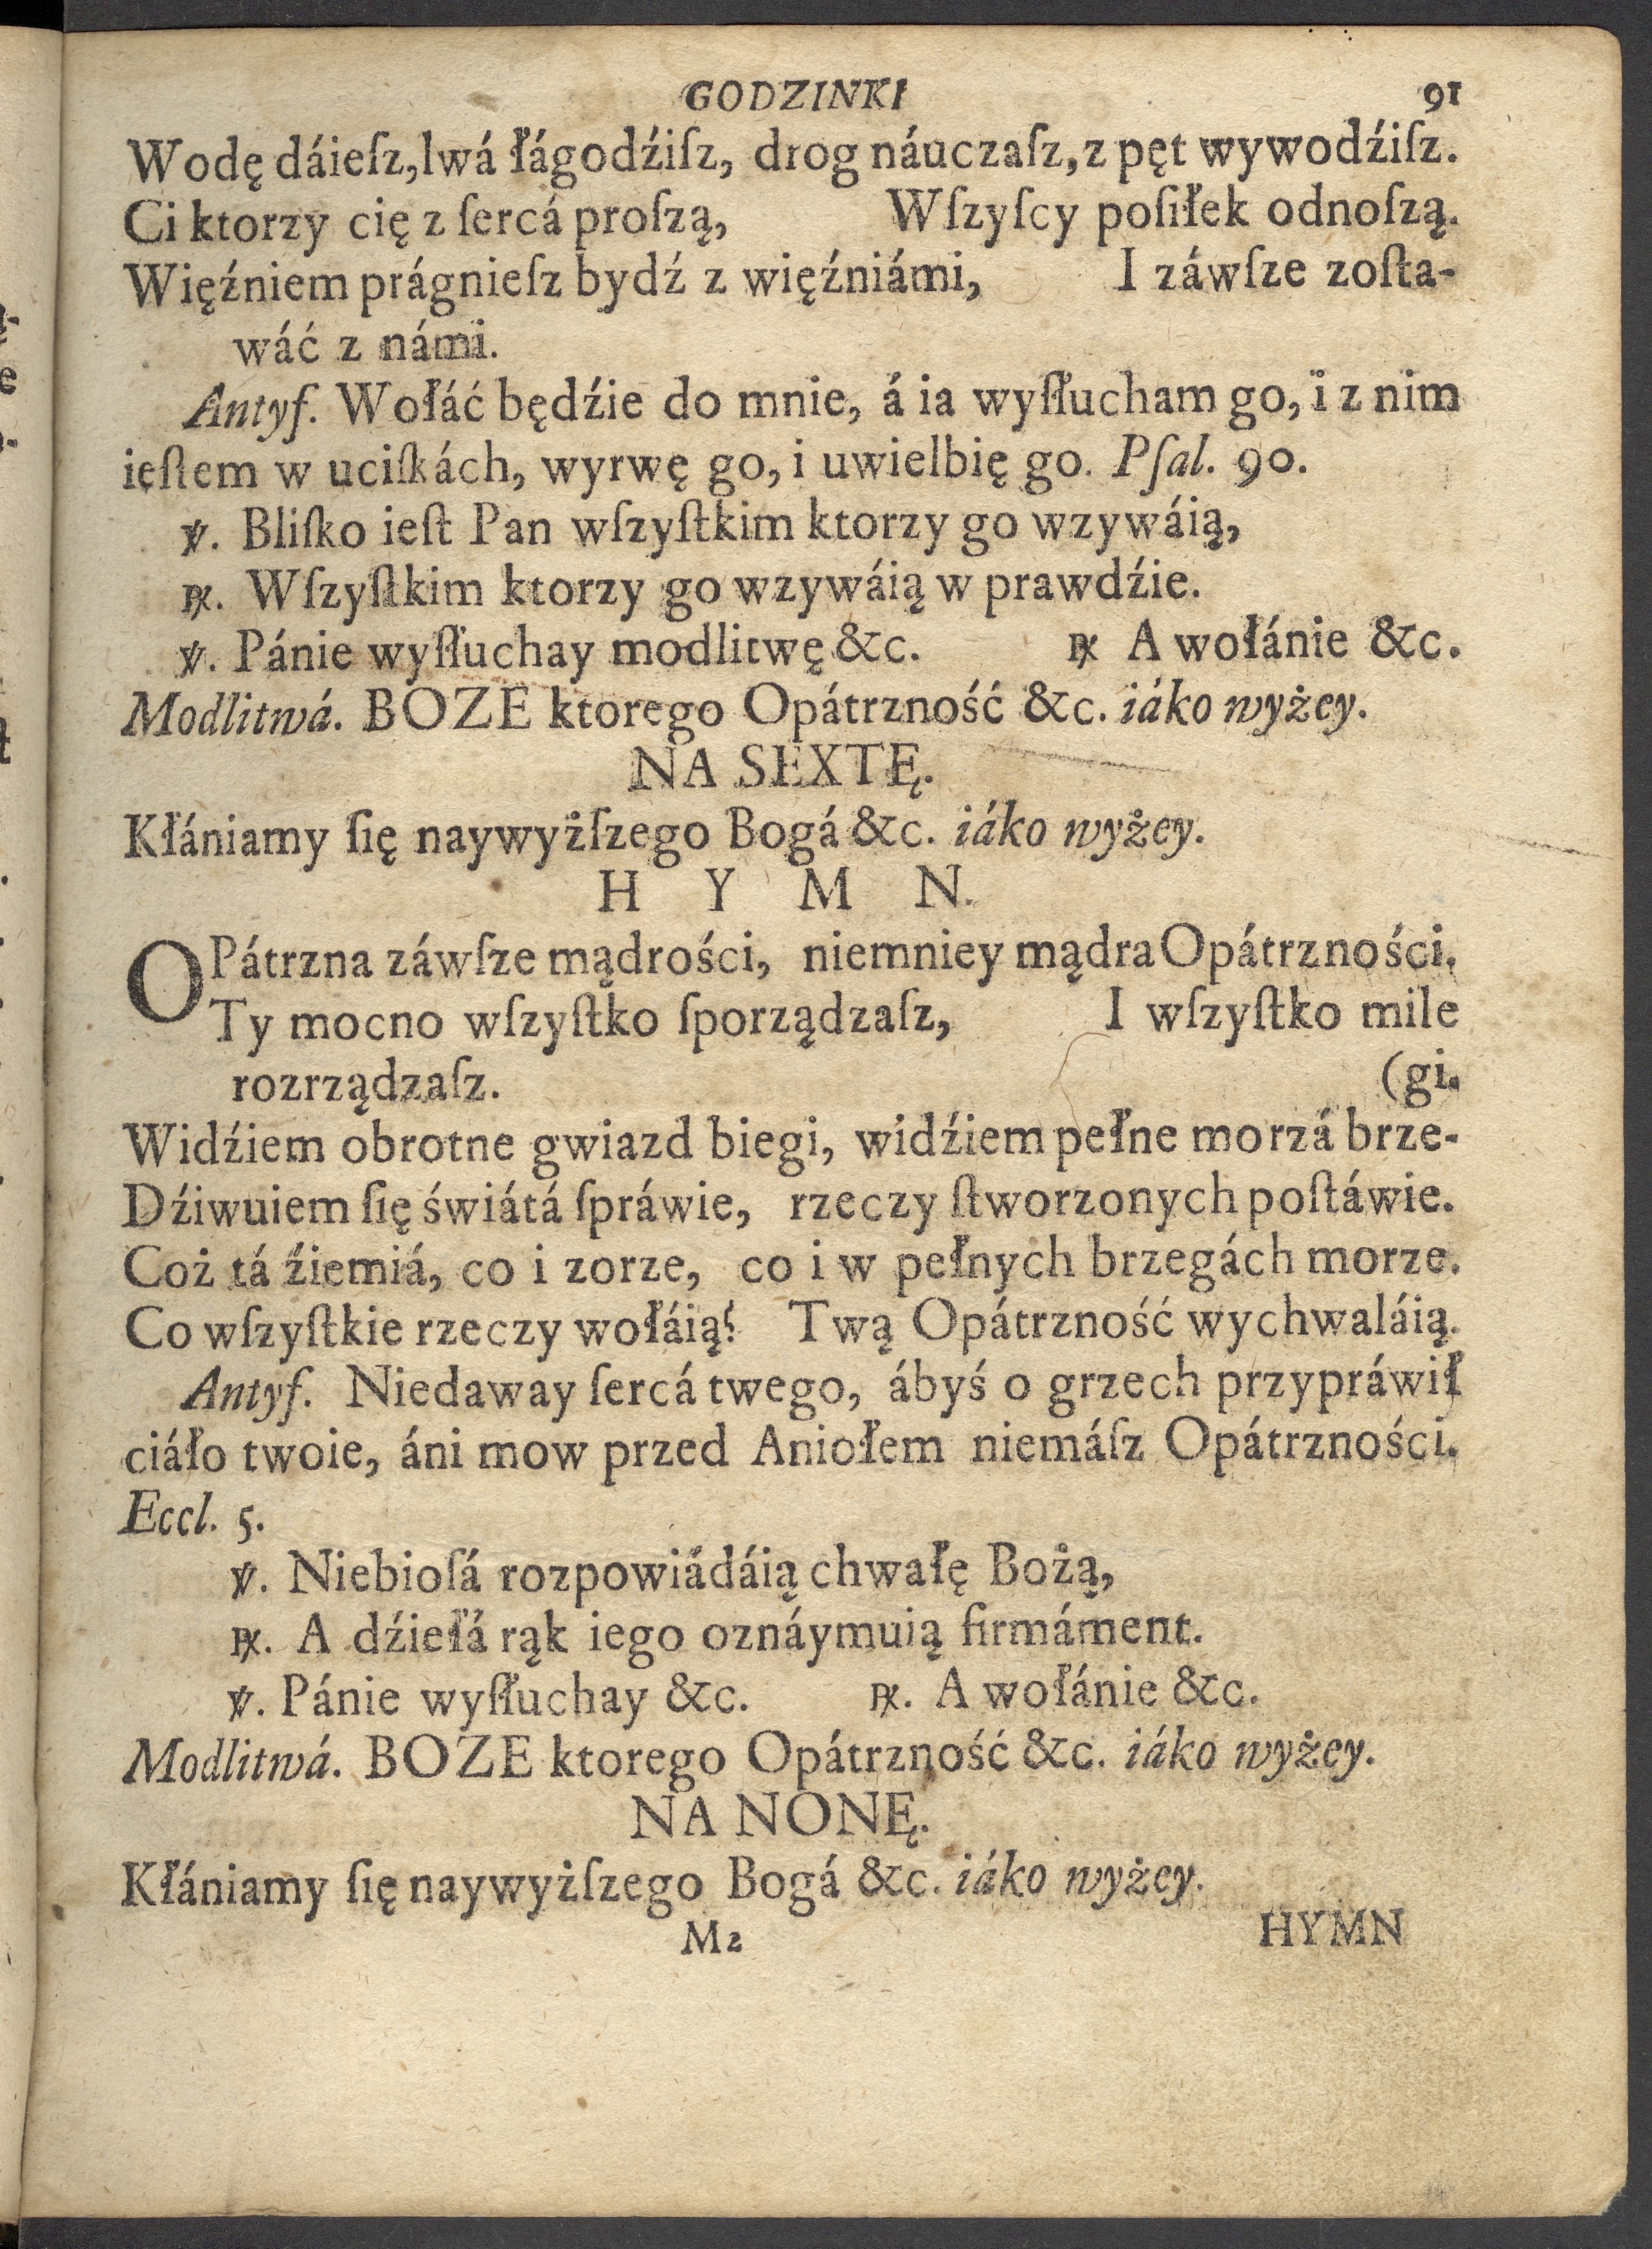 GODZINKI 91
Wodę dáieſz, lwá łágodźiſz, drog náuczaſz, z pęt wywodźiſz.
Ci ktorzy cię z ſercá proſzą, Wſzyſcy poſiłek odnoſzą.
Więźniem prágnieſz bydź z więźniámi, I záwſze zoſta-
wáć z námi.
Antyf. Wołáć będźie do mnie, á ia wyſłucham go, i z nim
ieſtem w uciſkách, wyrwę go, i uwielbię go. Pſal. 90.
℣. Bliſko ieſt Pan wſzyſtkim ktorzy go wzywáią,
℟. Wſzyſtkim ktorzy go wzywáią w prawdźie.
℣. Pánie wyſłuchay modlitwę &c. ℟ A wołánie &c.
Modlitwá. BOZE ktorego Opátrzność &c. iáko wyżey.
NA SEXTĘ.
Kłániamy ſię naywyżſzego Bogá &c. iáko wyżey.
H Y M N.
OPátrzna záwſze mądrości, niemniey mądra Opátrzności.
Ty mocno wſzyſtko ſporządzaſz, I wſzyſtko mile
rozrządzaſz. (gi.
Widźiem obrotne gwiazd biegi, widźiem pełne morzá brze-
Dźiwuiem ſię świátá ſpráwie, rzeczy ſtworzonych poſtáwie.
Coż tá źiemiá, co i zorze, co i w pełnych brzegách morze.
Co wſzyſtkie rzeczy wołáią? Twą Opátrzność wychwaláią.
Antyf. Niedaway ſercá twego, ábyś o grzech przypráwił
ciáło twoie, áni mow przed Aniołem niemáſz Opátrzności.
Eccl. 5.
℣. Niebioſá rozpowiádáią chwałę Bożą,
℟. A dźiełá rąk iego oznáymuią firmáment.
℣. Pánie wyſłuchay &c. ℟. A wołánie &c.
Modlitwá. BOZE ktorego Opátrzność &c. iáko wyżey.
NA NONĘ.
Kłániamy ſię naywyżſzego Bogá &c. iáko wyżey.
M2 HYMN